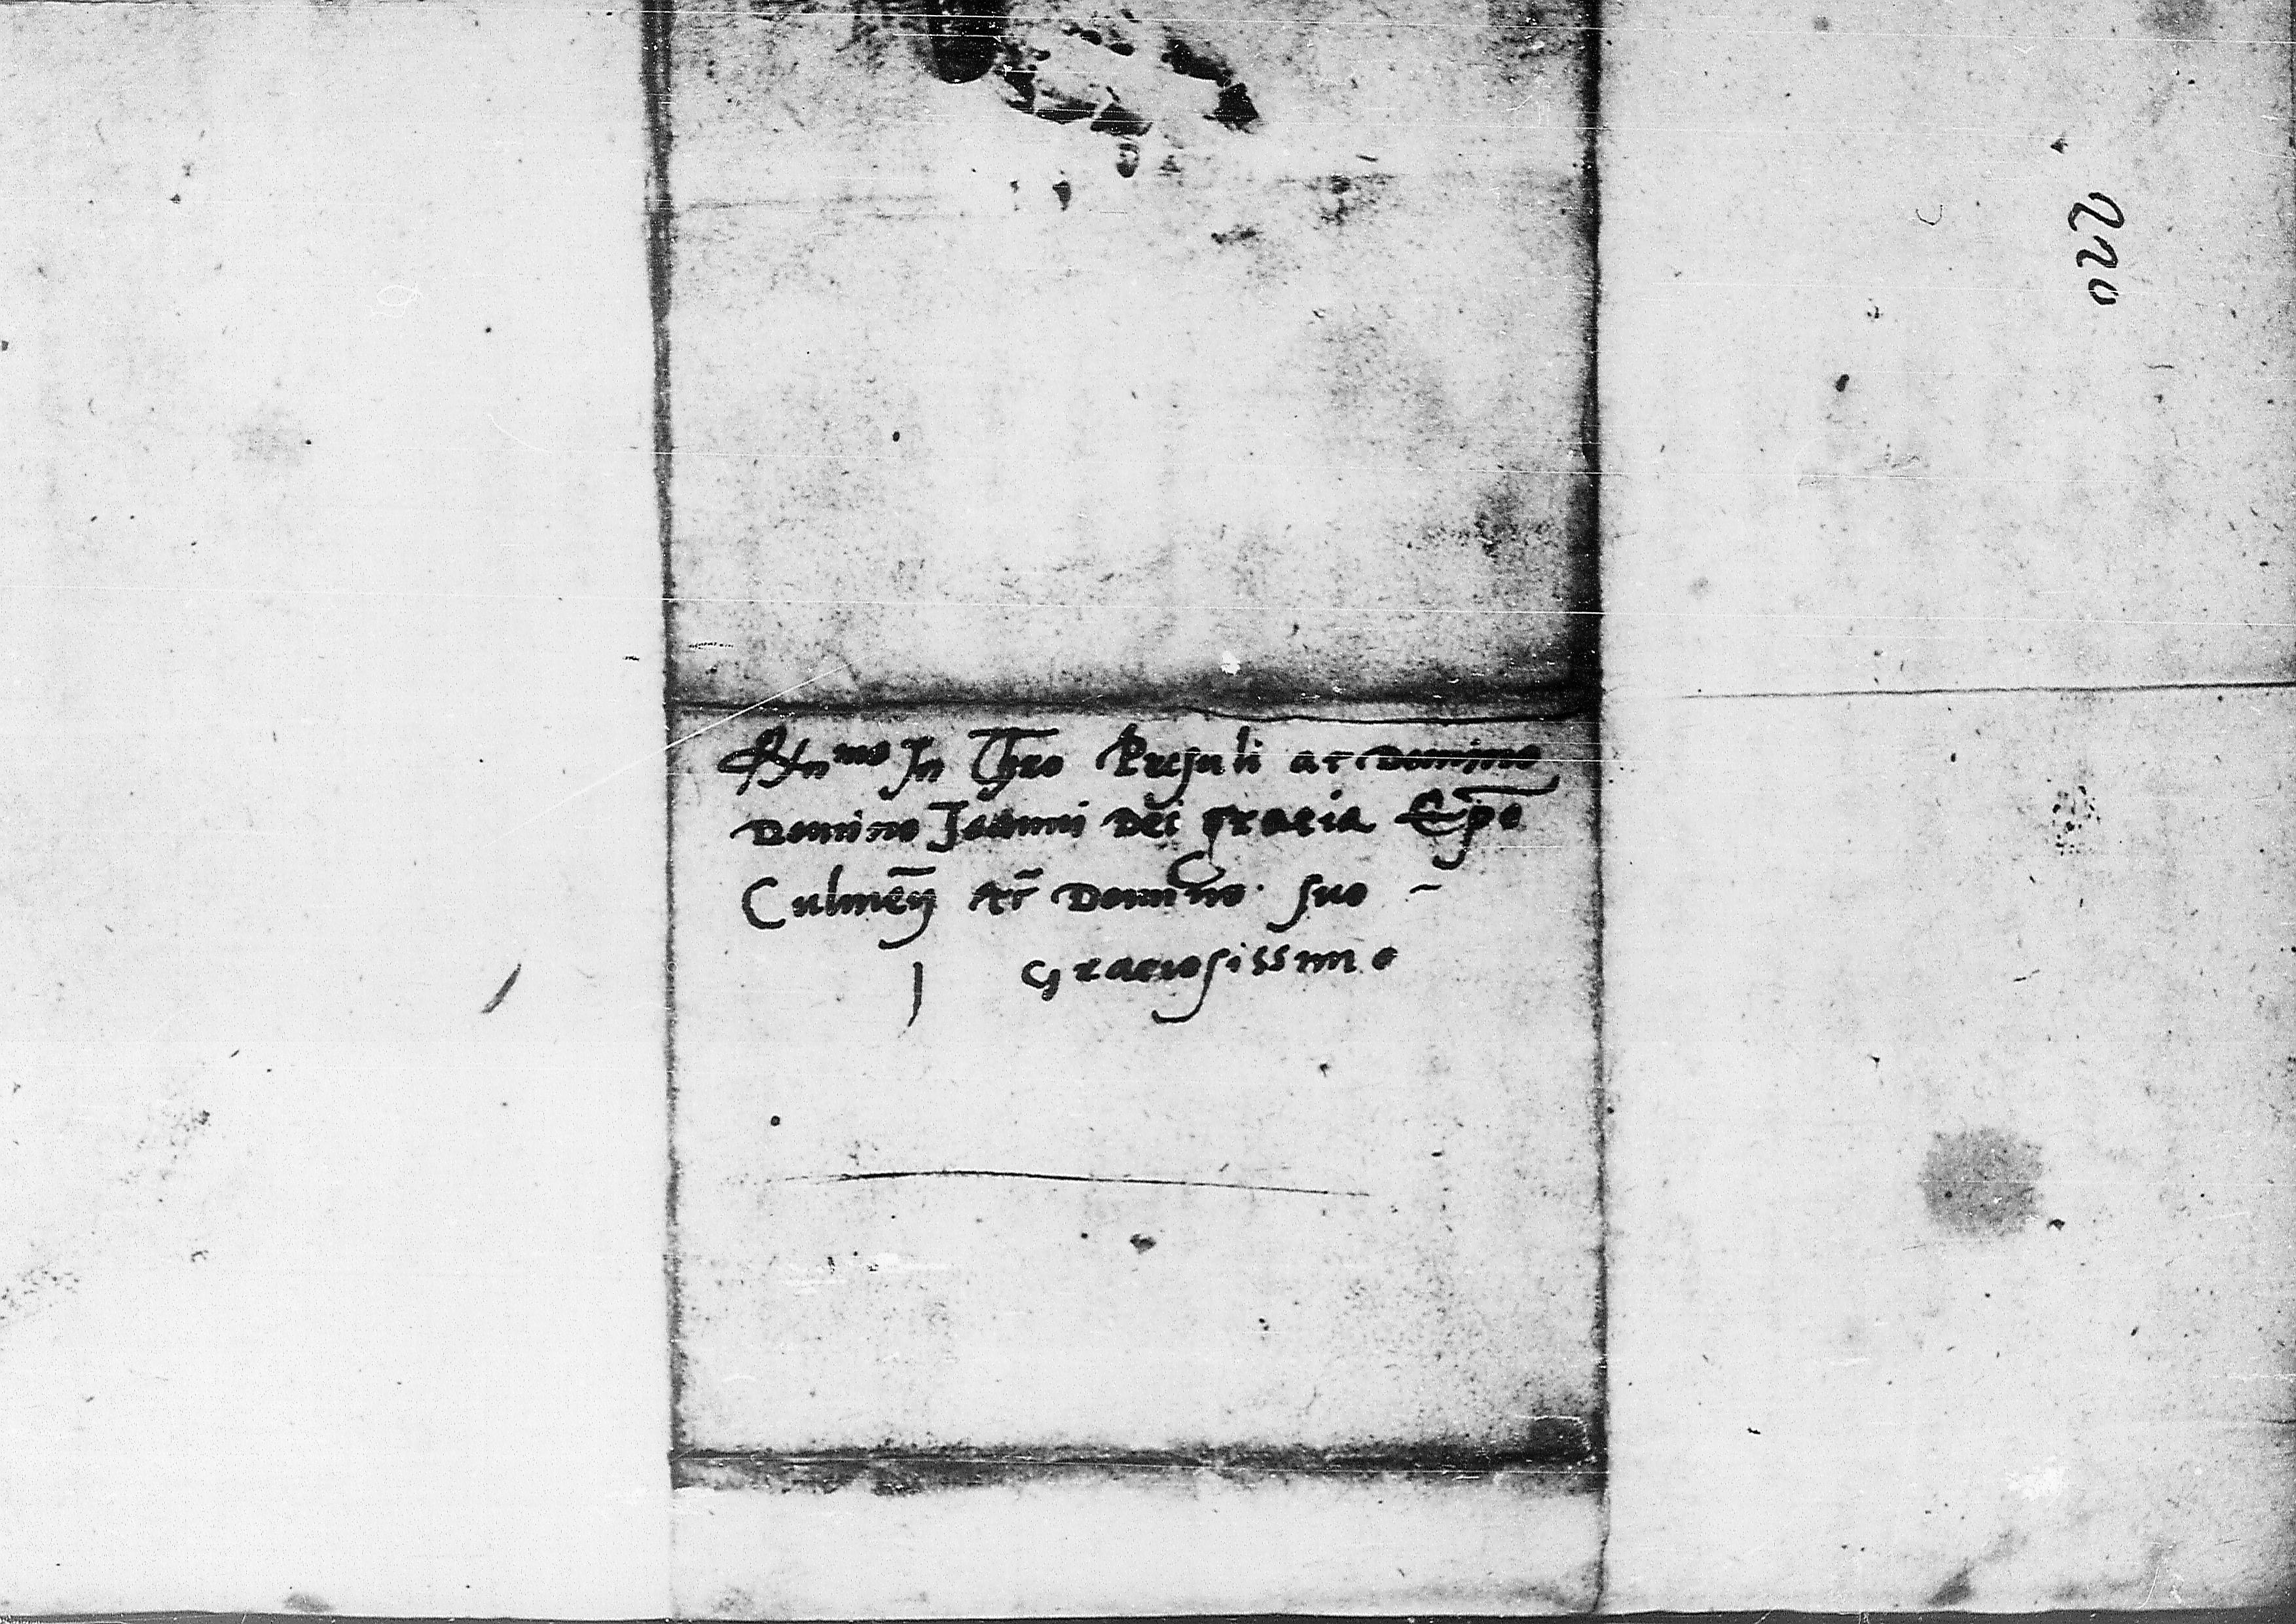 Rndmo In Chro Presuli ac Domino
Domino Joanni Dei gracia Epo
Culmeñ etc Domino suo
Graciosissimo
220